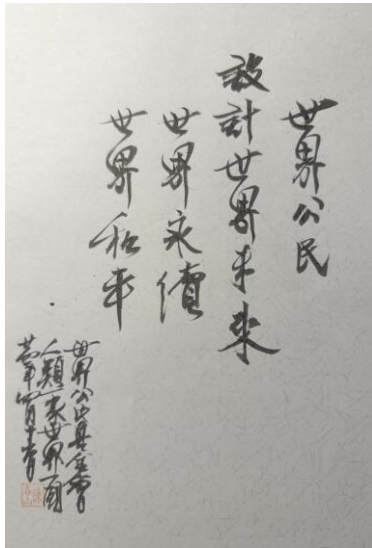 世界公民
設計世界未來
世界永續
世界和平
世界公民基金會
人類家世界